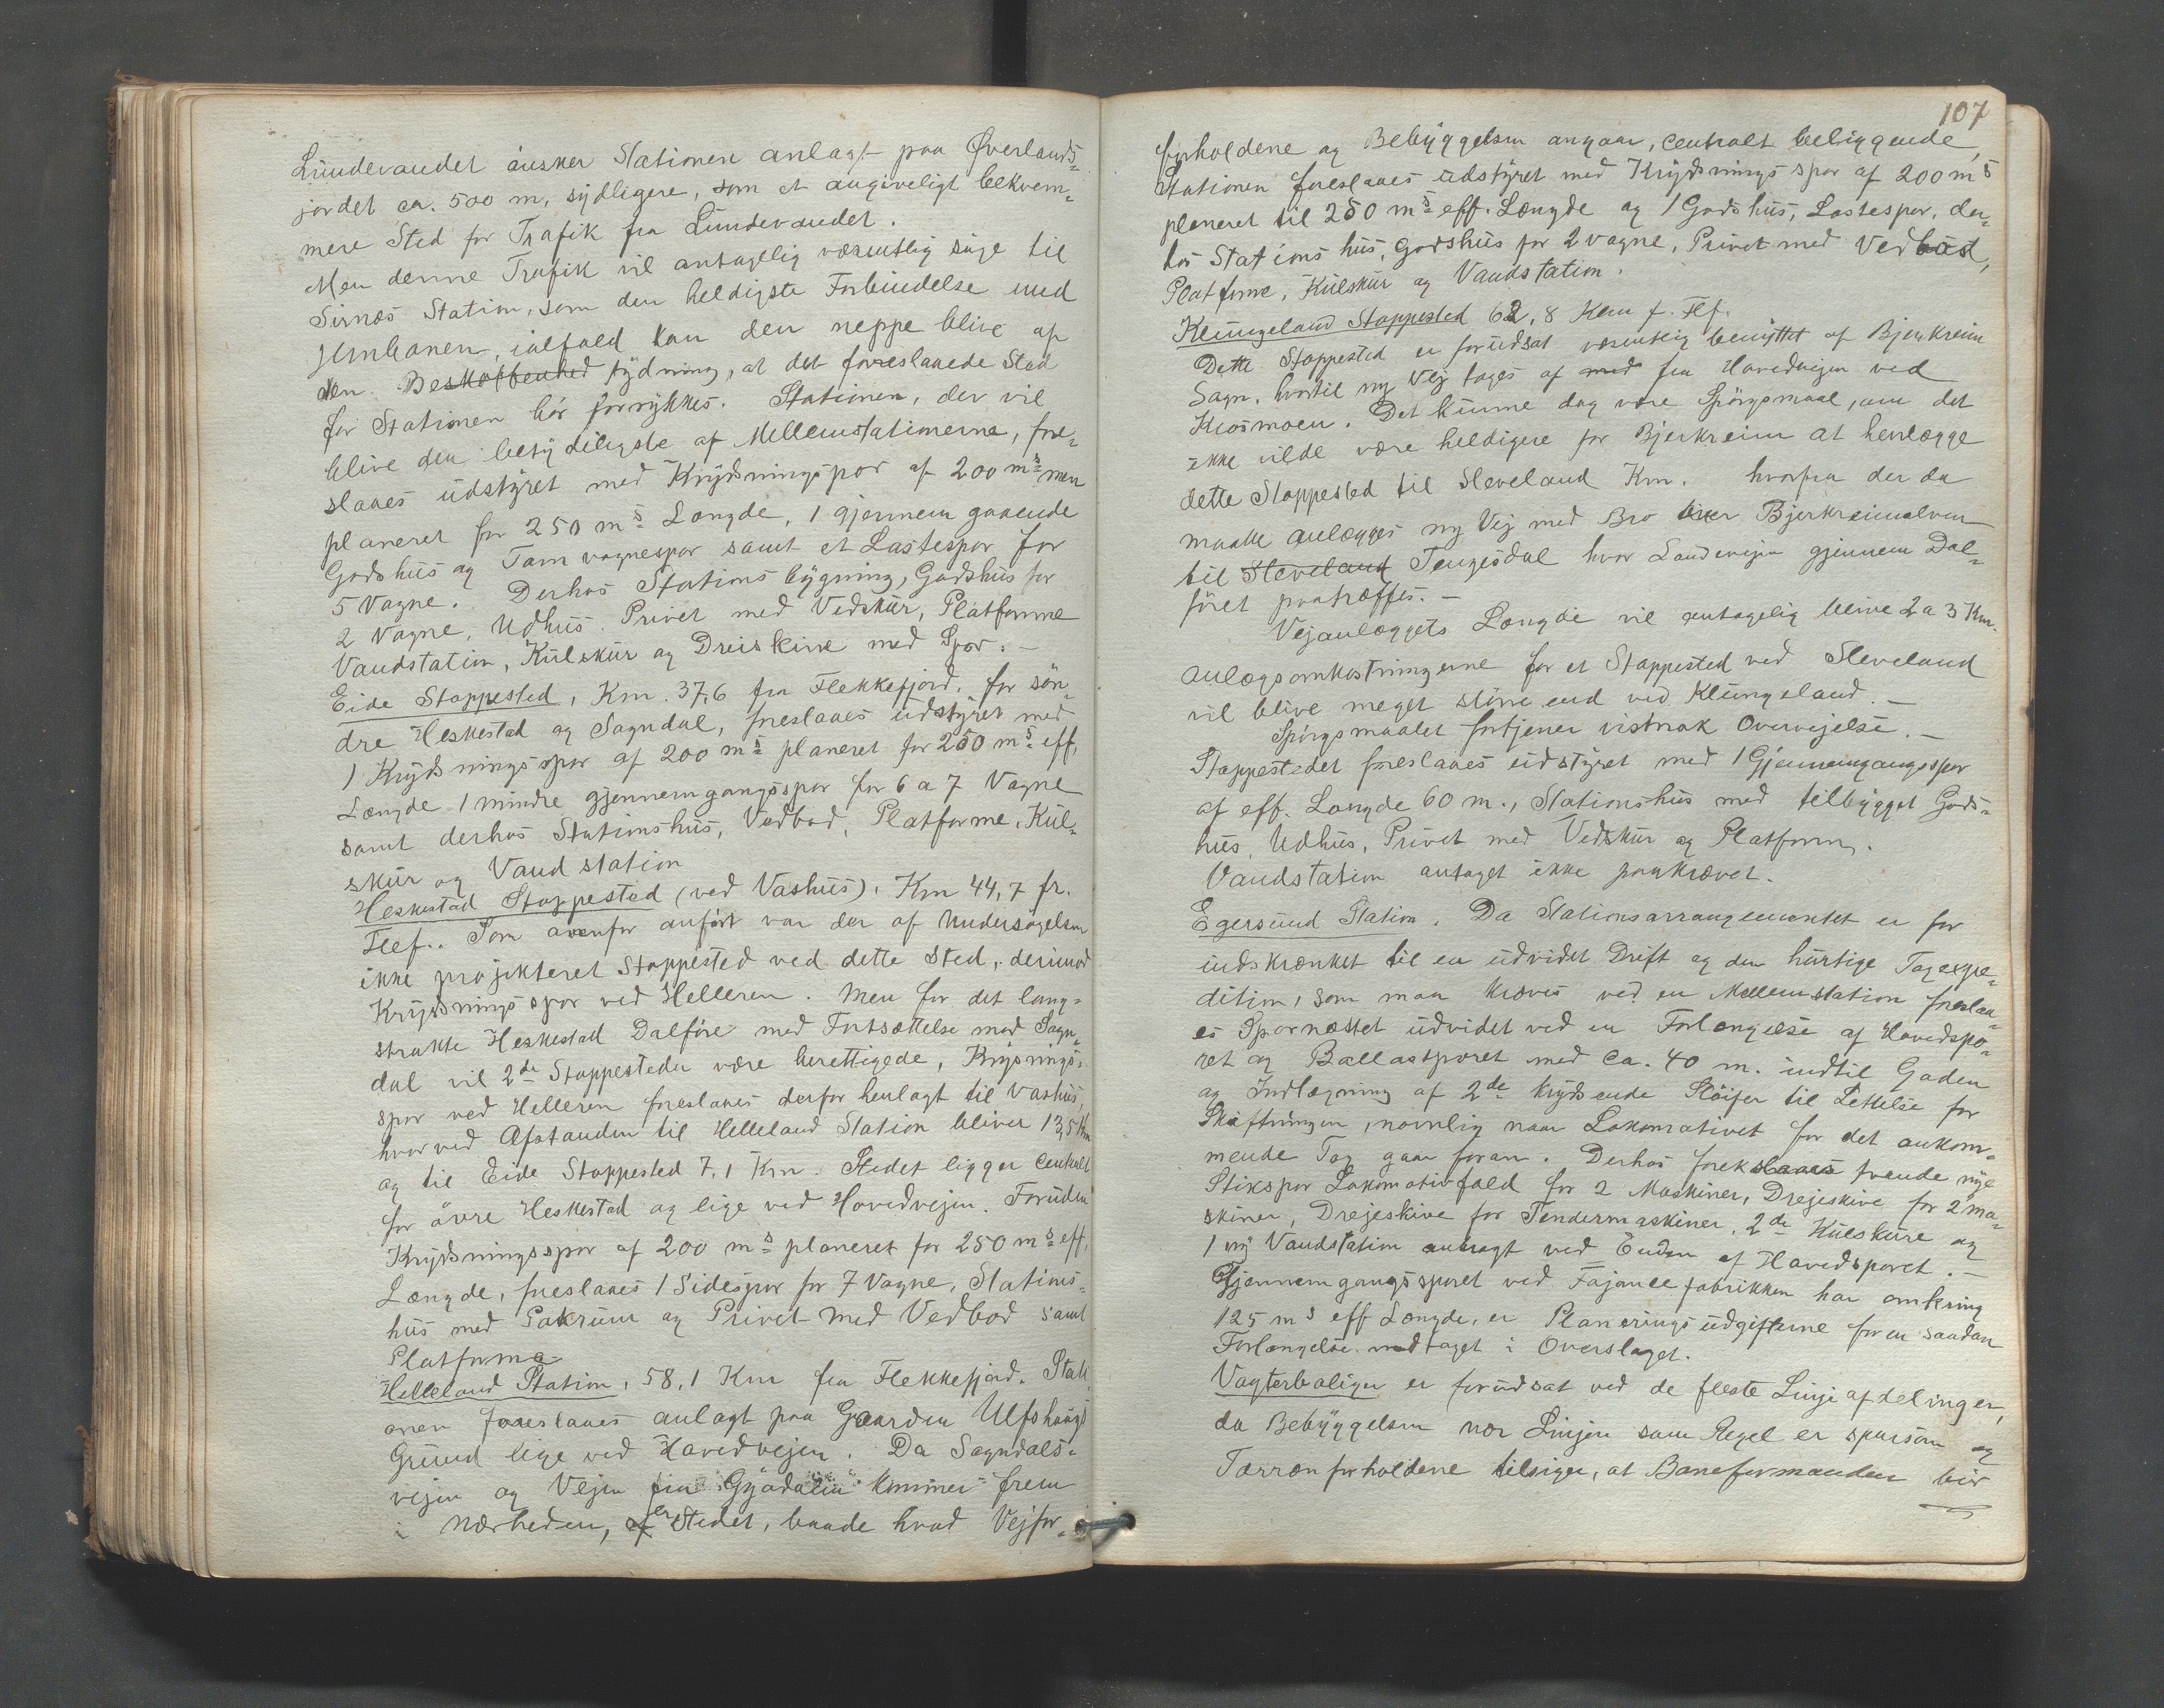 Lundevandet ønsker Stationen anlagt paa Øverlands-
jordet ca. 500 m, sydligere, som et angiveligt bekvem-
mere Sted for Trafik fra Lundevandet.
Men denne Trafik vil antagelig væsentlig søge til
Sirnæs Station, som den heldigste Forbindelse med
Jernbanen, ialfald kan den neppe blive af
den Beskaffenhed tydning, at det foreslaaede Sted
for Stationen bør forrykkes. Stationen, der vil
blive den betydeligste af Mellemstationerne, fore-
slaaes udstyret med Krydsningsspor af 200 ms men
planeret for 250 ms Længde, 1 gjennemgaaende
Godshus og Tomvognespor samt et Lastespor for
5 Vogne. Derhos Stationsbygning, Godshus for
2 Vogne, Udhus. Privet med Vedskur, Platforme
Vandstation, Kulskur og Dreiskive med Spor. –
Eide Stoppested, Km. 37,6 fra Flekkefjord, for søn-
dre Heskestad og Sogndal, foreslaaes udstyret med
1 Krydsningsspor af 200 ms planeret for 250 ms eff.
Længde 1 mindre gjennemgangsspor for 6 a 7 Vogne
samt derhos Stationshus, Vedbod, Platforme, Kul-
skur og Vandstation
Heskestad Stoppested (ved Vashus). Km 44,7 fr.
Flef.. Som ovenfor anført var der af Undersøgelsen
ikke projekteret Stoppested ved dette Sted, derimod
Krydsningsspor ved Helleren. Men for det lang-
strakte Heskestad Dalføre med Fortsættelse mod Sogn-
dal vil 2de Stoppesteder være berettigede, Krysnings-
spor ved Helleren foreslaaes derfor henlagt til Vashus,
hvorved Afstanden til Helleland Station bliver 13,5 Km
og til Eide Stoppested 7,1 Km. Stedet ligger centralt
for øvre Heskestad og lige ved Hovedvejen. Foruden
Krydsningsspor af 200 ms planeret for 250 ms eff.
Længde, foreslaaes 1 Sidespor for 7 Vogne, Stations-
hus med Pakrum og Privet med Vedbod samt
Platforme
Helleland Station, 58,1 Km fra Flekkefjord. Stati-
onen foreslaaes anlagt paa Gaarden Ulfshaugs
Grund lige ved Hovedvejen. Da Sogndals-
vejen og Vejen fra Gyadalen kommer frem
i Nærheden, af er Stedet, baade hvad Vejfor-
107
forholdene og Bebyggelsen angaar, centralt beliggende,
Stationen foreslaaes udstyret med Krydsningsspor af 200 ms
planeret til 250 ms eff. Længde og 1 Godshus, Lastespor, der-
hos Stationshus, Godshus for 2 vogne, Privet med Vedbod,
Platforme, Kulskur og Vandstation.
Klungeland Stoppested 62,8 Km f. Flf.
Dette Stoppested er forudsat væsentlig benyttet af Bjerkreim
Sogn, hvortil ny Vej tages af med fra Hovedvejen ved
Krosmoen. Det kunne dog være Spørgsmaal, om det
ikke vilde være heldigere for Bjerkreim at henlægge
dette Stoppested til Sleveland Km. hvorfra der da
maatte anlægges ny Vej med Bro over Bjerkreimselven
til Sleveland Tengesdal hvor Landevejen gjennem Dal-
føret paatræffes. –
Vejanlæggets Længde vil antagelig blive 2 a 3 Km.
Anlægsomkostningerne for et Stoppested ved Sleveland
vil blive meget større end ved Klungeland. –
Spørgsmaalet fortjener vistnok Overvejelse. –
Stoppestedet foreslaaes udstyret med 1 Gjennemgangsspor
af eff. Længde 60 m., Stationshus med tilbygget Gods-
hus, Udhus, Privet med Vedskur og Platform.
Vandstation antaget ikke paakrævet.
Egersund Station. Da Stationsarrangementet er for
indskrænket til en udvidet Drift og den hurtige Togexpe-
dition, som maa kræves ved en Mellemstation foreslaa-
es Spornættet udvidet ved en Forlængelse af Hovedspo-
ret og Ballastsporet med ca. 40 m. indtil Gaden
og Indlægning af 2de krydsende Sløifer til Lettelse for
Skiftningen, navnlig naar Lokomotivet for det ankom-
mende Tog gaar foran. Derhos forekslaaes frende nye
Stikspor Lokomotivstald for 2 Maskiner, Drejeskive for 2 ma-
skiner, Drejeskive for Tendermaskiner, 2de Kulskure og
1 ny Vandstation anbragt ved Enden af Hovedsporet. –
Gjennemgangssporet ved Fajancefabrikken har omkring
125 ms eff Længde, er Planeringsudgifterne for en saadan
Forlængelse medtaget i Overslaget.
Vogterboliger er forudsat ved de fleste Linjeafdelinger,
da Bebyggelsen nær Linjen som Regel er sparsom og
Terrænforholdene tilsiger, at Baneformanden bør